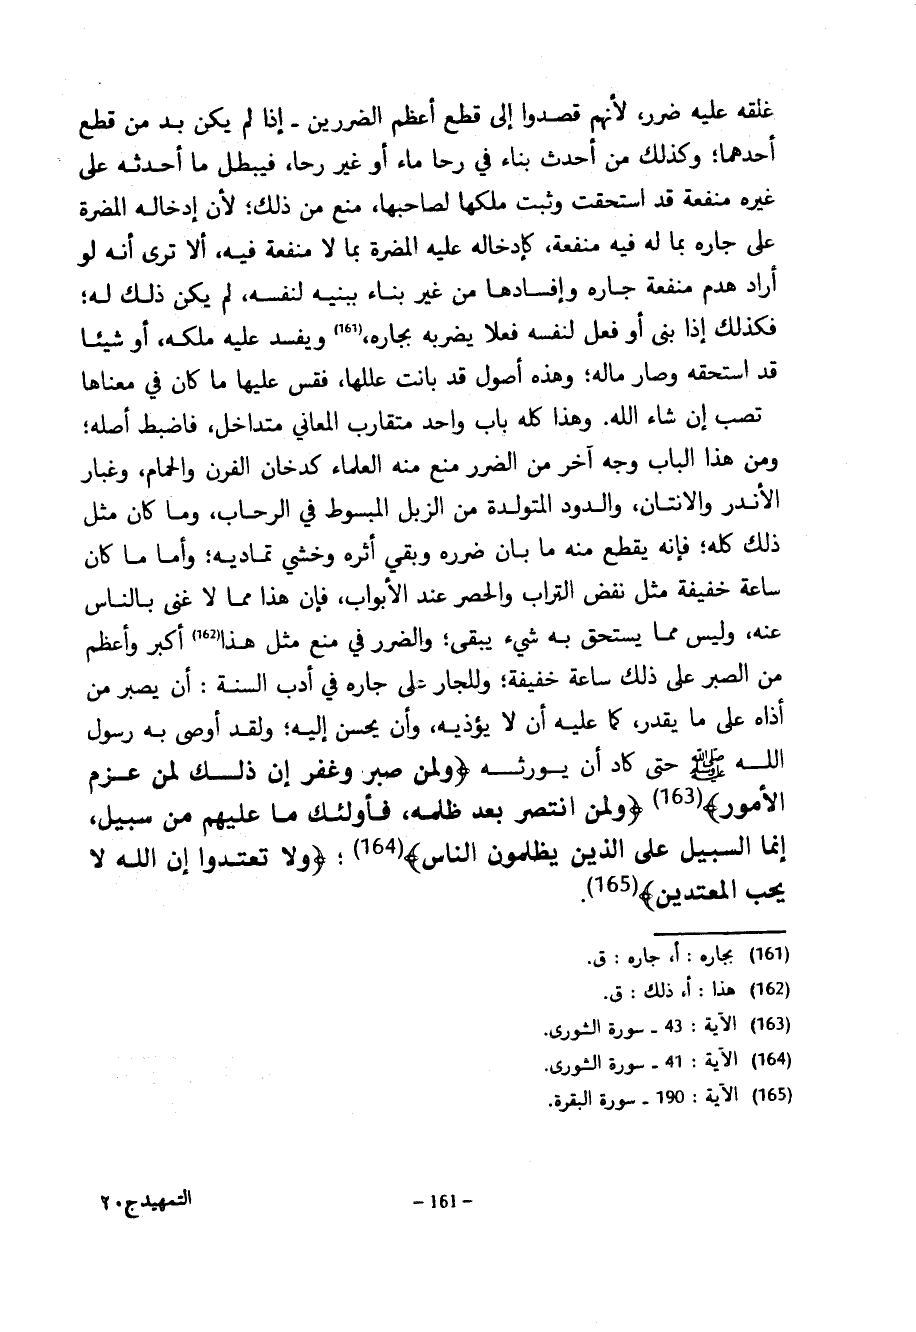 غلقه عليه ضرر، لأنهم قصدوا إلى قطع أعظم الضررين ـ إذا لم يكن بد من قطع
أحدهما؛ وكذلك من أحدث بناء في رحا ماء أو غير رحا، فيبطل ما أحدثه على
غيره منفعة قد استحقت وثبت ملكها لصاحبها، منع من ذلك؛ لأن إدخاله المضرة
على جاره بما له فيه منفعة، كإدخاله عليه المضرة بما لا منفعة فيه، ألا ترى أنه لو
أراد هدم منفعة جاره وإفسادها من غير بناء يبنيه لنفسه، لم يكن ذلك له؛
فكذلك إذا بنى أو فعل لنفسه فعلا يضربه بجاره،(161) ويفسد عليه ملكه، أو شيئا
قد استحقه وصار ماله؛ وهذه أصول قد بانت عللها، فقس عليها ما كان في معناها
تصب إن شاء الله. وهذا كله باب واحد متقارب المعاني متداخل، فاضبط أصله؛
ومن هذا الباب وجه آخر من الضرر منع منه العلماء كدخان الفرن والحمام، وغبار
الأندر والانتان، والدود المتولدة من الزبل المبسوط في الرحاب، وما كان مثل
ذلك كله؛ فإنه يقطع منه ما بان ضرره وبقي أثره وخشي تماديه؛ وأما ما كان
ساعة خفيفة مثل نفض التراب والحصر عند الأبواب، فإن هذا مما لا غنى بالناس
عنه، وليس مما يستحق به شيء يبقى؛ والضرر في منع مثل هذا(162) أكبر وأعظم
من الصبر على ذلك ساعة خفيفة؛ وللجار على جاره في أدب السنة : أن يصبر من
أذاه على ما يقدر، كما عليه أن لا يؤذيه، وأن يحسن إليه؛ ولقد أوصى به رسول
اللـه ﷺ حتى كاد أن يورثـه ﴿ولمن صبر وغفر إن ذلك لمن عزم
الأمور﴾(163) ﴿ولمن انتصر بعد ظلمه، فأولئك ما عليهم من سبيل،
إنما السبيل على الذين يظلمون الناس﴾(164) ؛ ﴿ولا تعتدوا إن الله لا
يحب المعتدين﴾(165).
(161) بجاره : أ، جاره : ق.
(162) هذا : أ، ذلك : ق.
(163) الآية : 43 ـ سورة الشورى.
(164) الآية : 41 ـ سورة الشورى.
(165) الآية : 190 ـ سورة البقرة.
– 161 –
التمهيدج٢٠